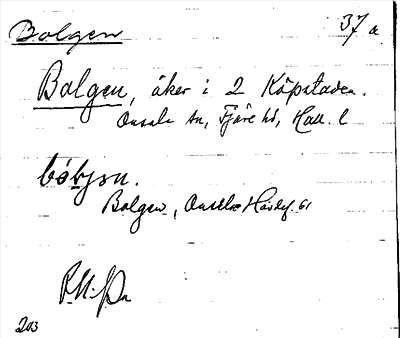 Bolgen 37 a
Bolgen, åker i 2 Köpstaden.
Onsala sn, Fjäre hd, Hall. l
bó̱bjsn.
Bolgen, Onsala
203